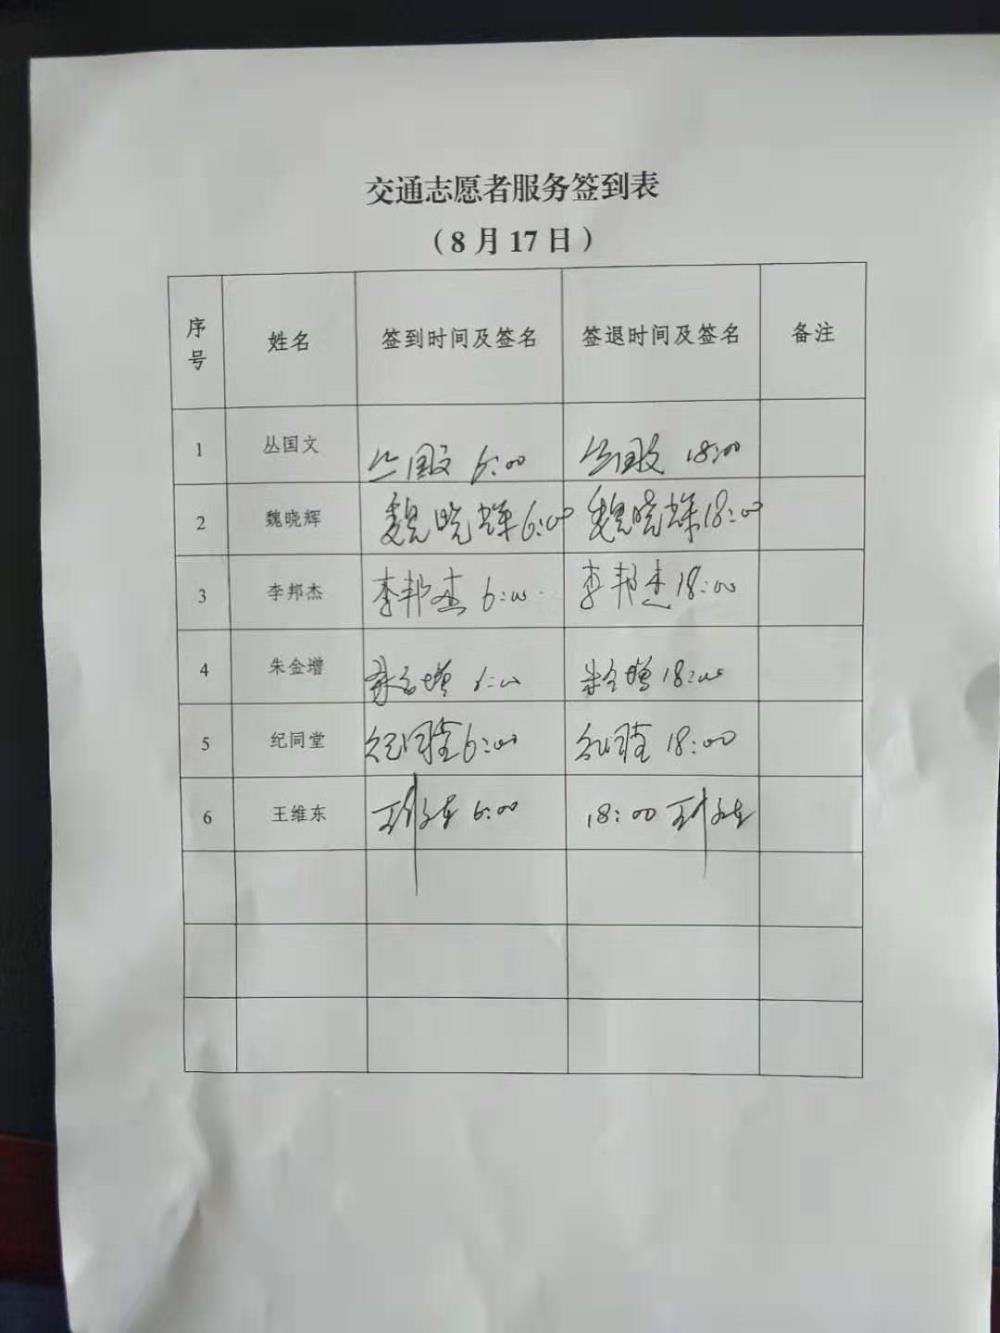 交通志愿者服务签到表
（8月17日）
序号 姓名 签到时间及签名 签退时间及签名 备注
1 丛国文 丛国文 6:00 丛国文 18:00
2 魏晓辉 魏晓辉 6:00 魏晓辉 18:00
3 李邦杰 李邦杰 6:00 李邦杰 18:00
4 朱金增 朱金增 6:00 朱金增 18:00
5 纪同堂 纪同堂 6:00 纪同堂 18:00
6 王维东 王维东 6:00 18:00 王维东